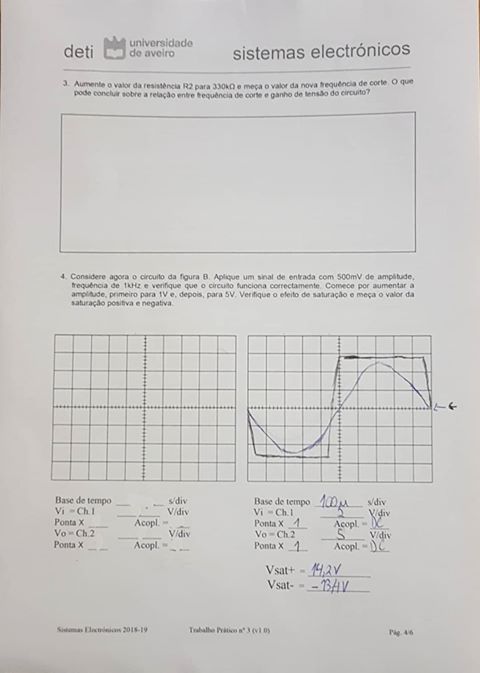 deti universidade de aveiro sistemas electrónicos
3. Aumente o valor da resistência R2 para 330kΩ e meça o valor da nova frequência de corte. O que
pode concluir sobre a relação entre frequência de corte e ganho de tensão do circuito?
4. Considere agora o circuito da figura B. Aplique um sinal de entrada com 500mV de amplitude,
frequência de 1kHz e verifique que o circuito funciona correctamente. Comece por aumentar a
amplitude, primeiro para 1V e, depois, para 5V. Verifique o efeito de saturação e meça o valor da
saturação positiva e negativa.
Base de tempo ___ . __ s/div
Vi = Ch.1 ___ . __ V/div
Ponta X ___ Acopl. = ___
Vo = Ch.2 ___ V/div
Ponta X ___ Acopl. = ___
Base de tempo 100µ s/div
Vi = Ch.1 5 V/div
Ponta X 1 Acopl. = DC
Vo = Ch.2 5 V/div
Ponta X 1 Acopl. = DC
Vsat+ = 14,2V
Vsat- = -13,4V
Sistemas Electrónicos 2018-19 Trabalho Prático nº 3 (v1.0) Pág. 4/6